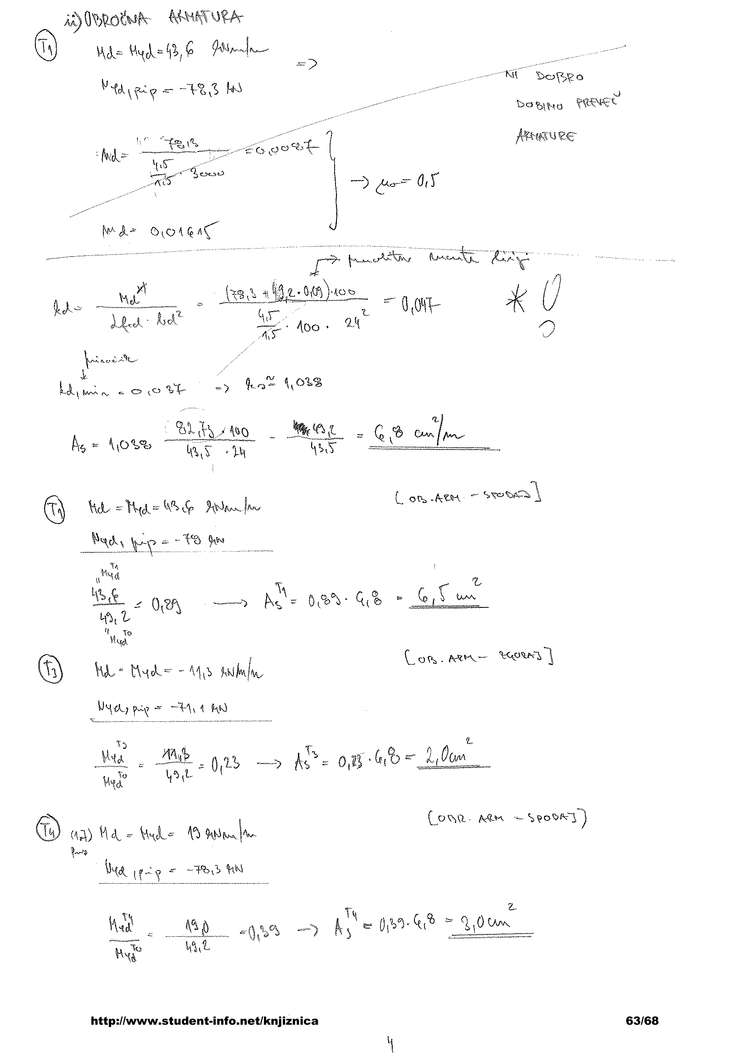 ii) OBROČNA ARMATURA
T1 Md = Myd = 43,6 kNm/m =>
Nyd,prip = -78,3 kN
NI DOBRO
DOBIMO PREVEČ
ARMATURE
78,3
= 0,0087
4,5
1,5 · 3000
→ μ0 = 0,5
md = 0,01615
kd = Md* / αfcd · bd² = (78,3 + 49,2 · 0,09) · 100 / 4,5/1,5 · 100 · 24² = 0,047 * !
kd,min = 0,037 => ks ≈ 1,038
As = 1,038 82,73 · 100 / 43,5 · 24 - 49,2 / 43,5 = 6,8 cm²/m
T1 Md = Myd = 43,6 kNm/m [OB. ARM - SPODAJ]
Nyd, prip = -78 kN
"Myd T1
43,6 / 49,2 = 0,89 → As T1 = 0,89 · 6,8 = 6,5 cm²
"Myd T0
T3 Md = Myd = -11,3 kNm/m [OB. ARM - ZGORAJ]
Nyd, prip = -71,1 kN
Myd T3 / Myd T0 = 11,3 / 49,2 = 0,23 → As T3 = 0,23 · 6,8 = 2,0 cm²
T4 Md = Myd = 19 kNm/m [OBR. ARM - SPODAJ]
Nyd, prip = -78,3 kN
Myd T4 / Myd T0 = 19,0 / 49,2 = 0,39 → As T4 = 0,39 · 6,8 = 3,0 cm²
http://www.student-info.net/knjiznica 63/68
4